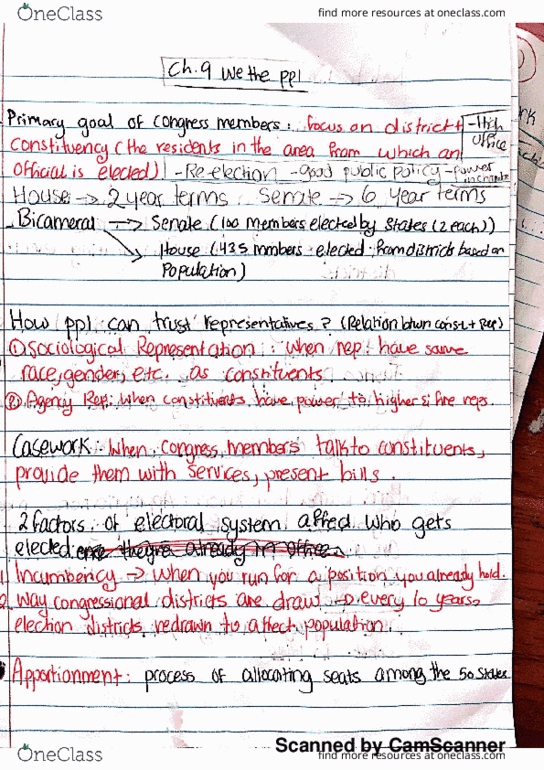 OneClass
find more resources at oneclass.com
Ch.9 We the ppl
Primary goal of congress members: focus on district +
constituency (the residents in the area from which an
official is elected) - Re-election - good public policy - power
- High
office
House → 2 year terms. Senate → 6 year terms
- Bicameral → Senate (100 members elected by States (2 each))
→ House (435 mmbers elected from districts based on
Population)
How ppl can trust representatives? (Relation btwn const. + Rep)
① Sociological Representation: when rep. have same
race, gender, etc. as constituents.
② Agency Rep: when constituents have power to higher & fire reps.
Casework: when congress members talk to constituents,
provide them with services, present bills.
2 factors of electoral system affect who gets
elected once they're already in office.
1 Incumbency → when you run for a position you already hold.
2 Way congressional districts are draw → every 10 years,
election districts redrawn to affect population.
Apportionment: process of allocating seats among the 50 states
Scanned by CamScanner
OneClass
find more resources at oneclass.com